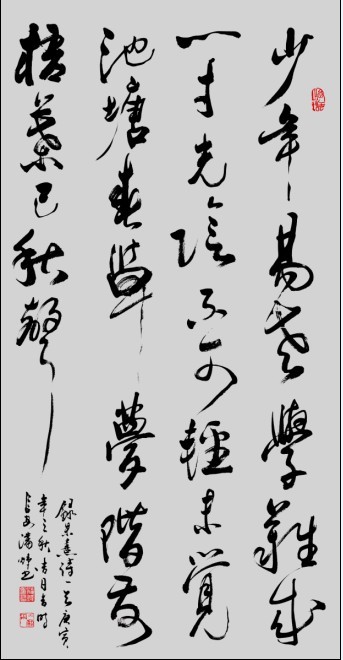 少年易老學難成
一寸光陰不可輕未覺
池塘春草夢階前
梧葉已秋聲
錄朱熹詩一首庚寅
年之秋月